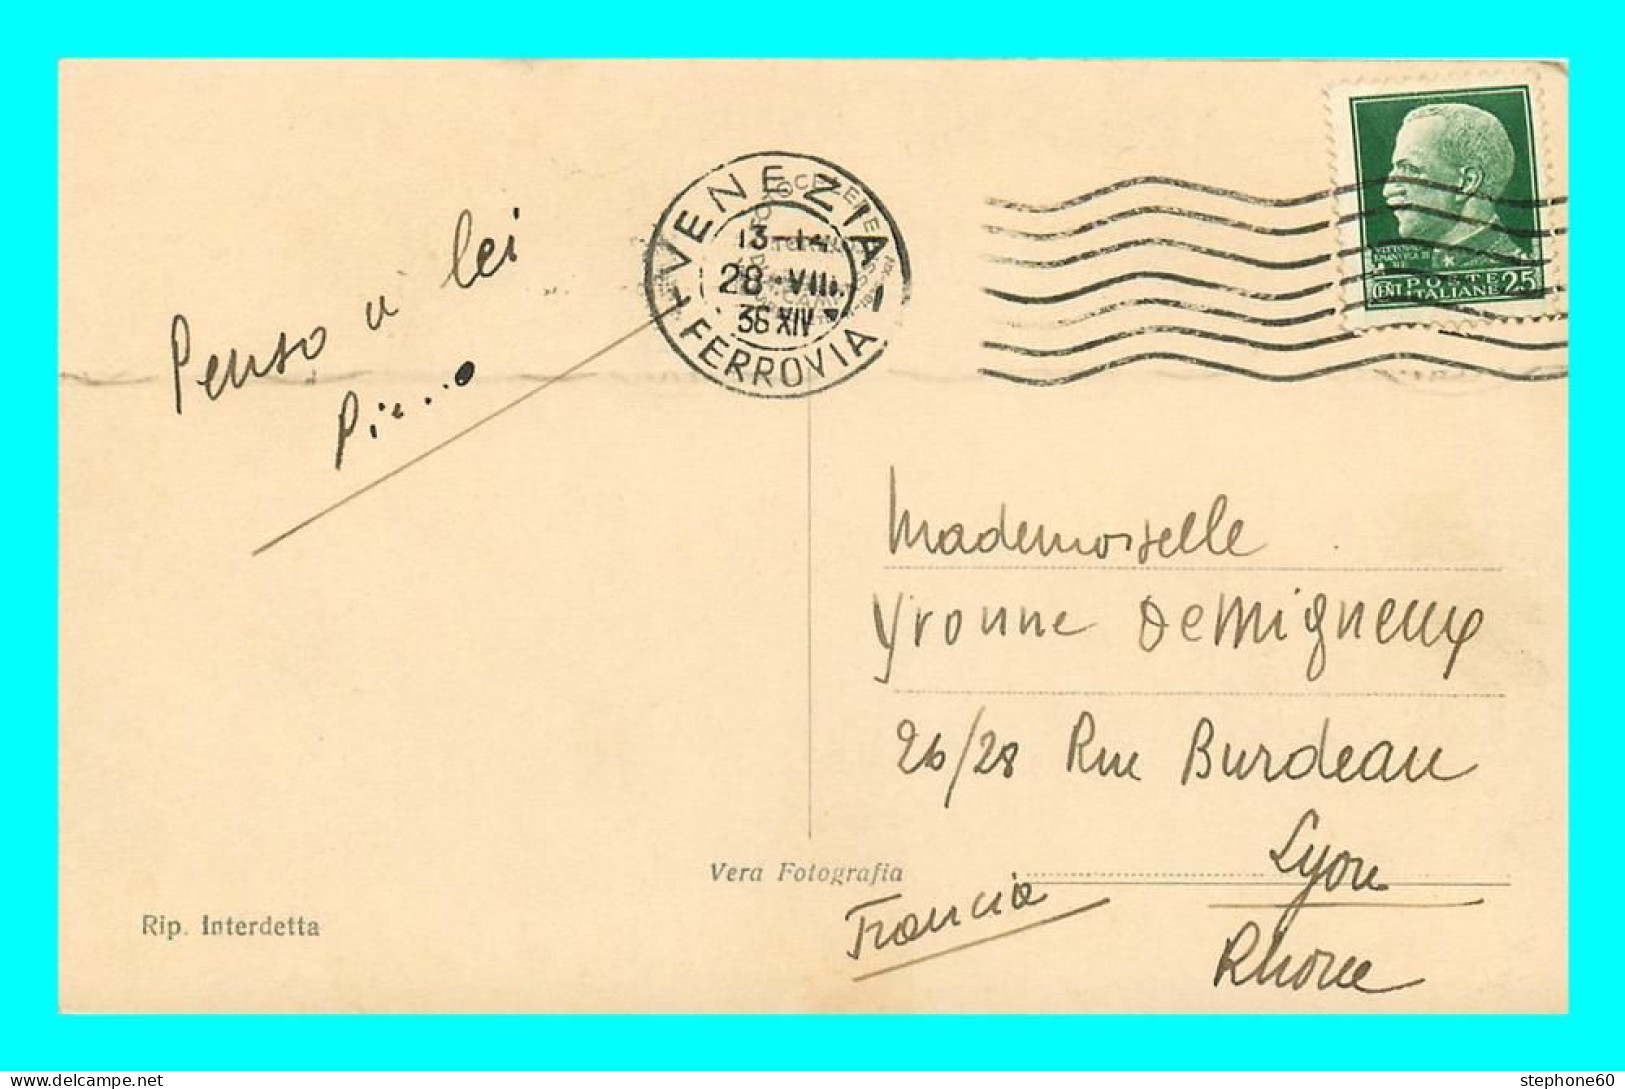 VENEZIA
28 · VIII
36 XIV
FERROVIA
POSTE
CENT ITALIANE 25
Penso a lei
Mademoiselle
Yvonne Demigneux
26/28 Rue Burdeau
Lyon
Rhône
Francia
Vera Fotografia
Rip. Interdetta
www.delcampe.net
stephone60